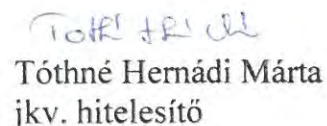 Tóthné Hernádi Márta
jkv. hitelesítő